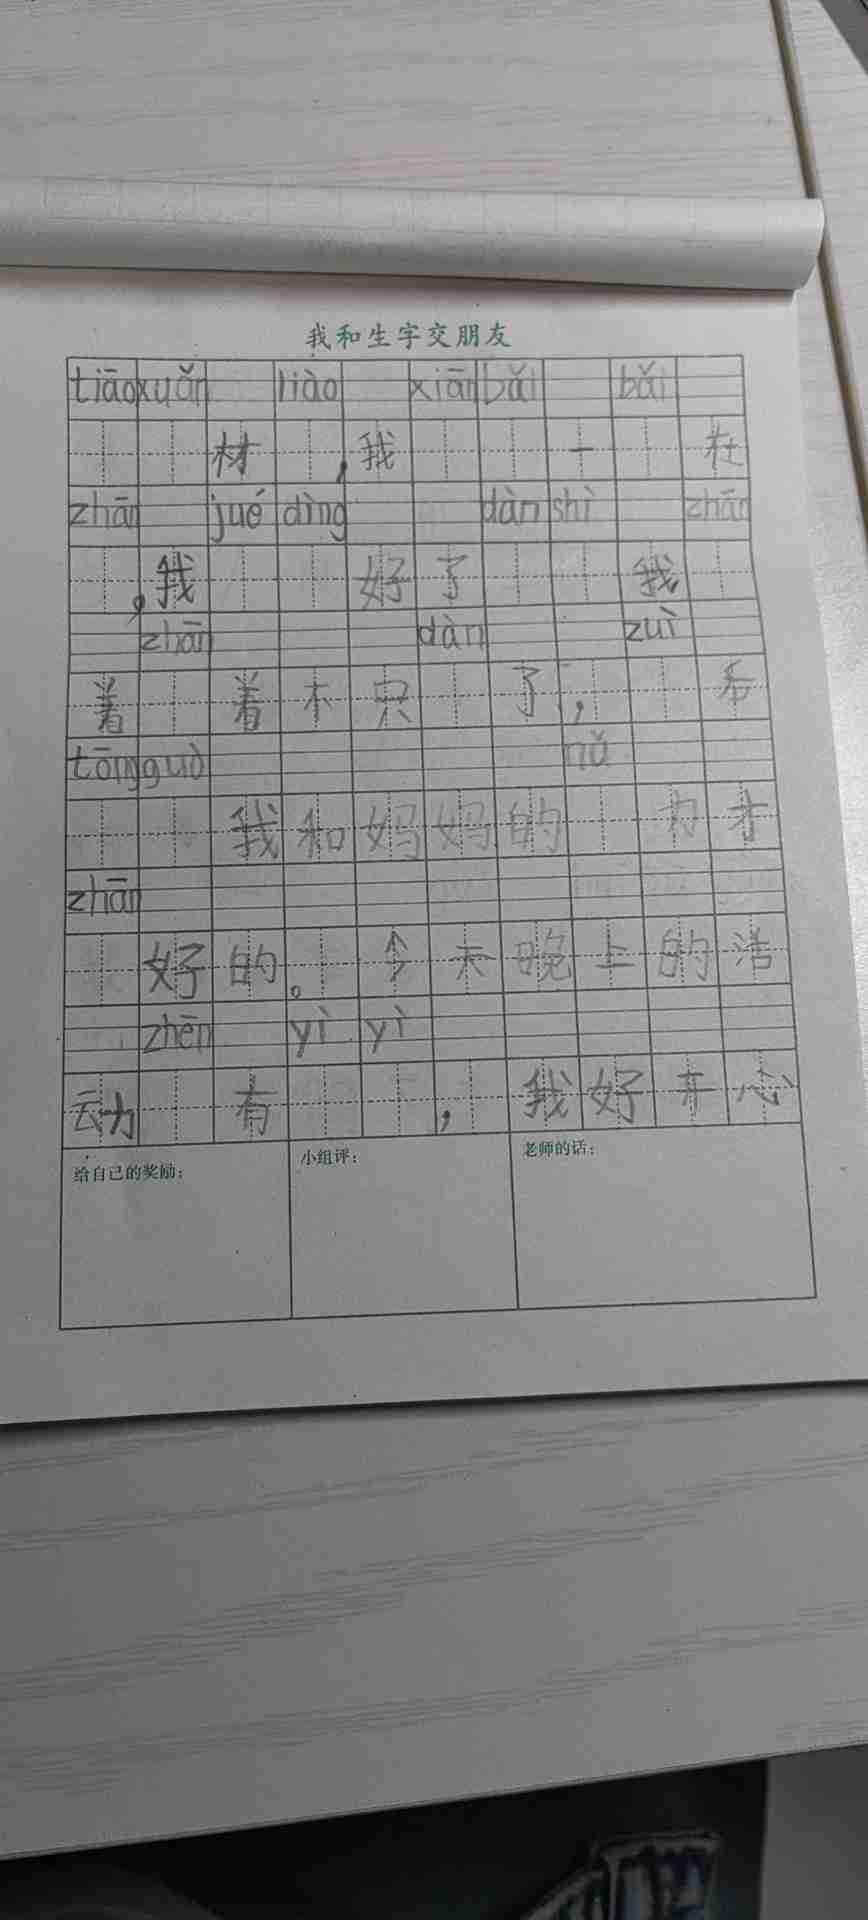 我和生字交朋友
tiāo xuǎn liào xiān bǎi bǎi
材 ，我 一 在
zhān jué dìng dàn shì zhān
，我 好了 我
zhān dàn zuì
着 着不只 了， 后
tōng guò nǔ
我和妈妈的 力才
zhān
好的。今天晚上的活
zhēn yì yì
动 有 ，我好开心
给自己的奖励：
小组评：
老师的话：